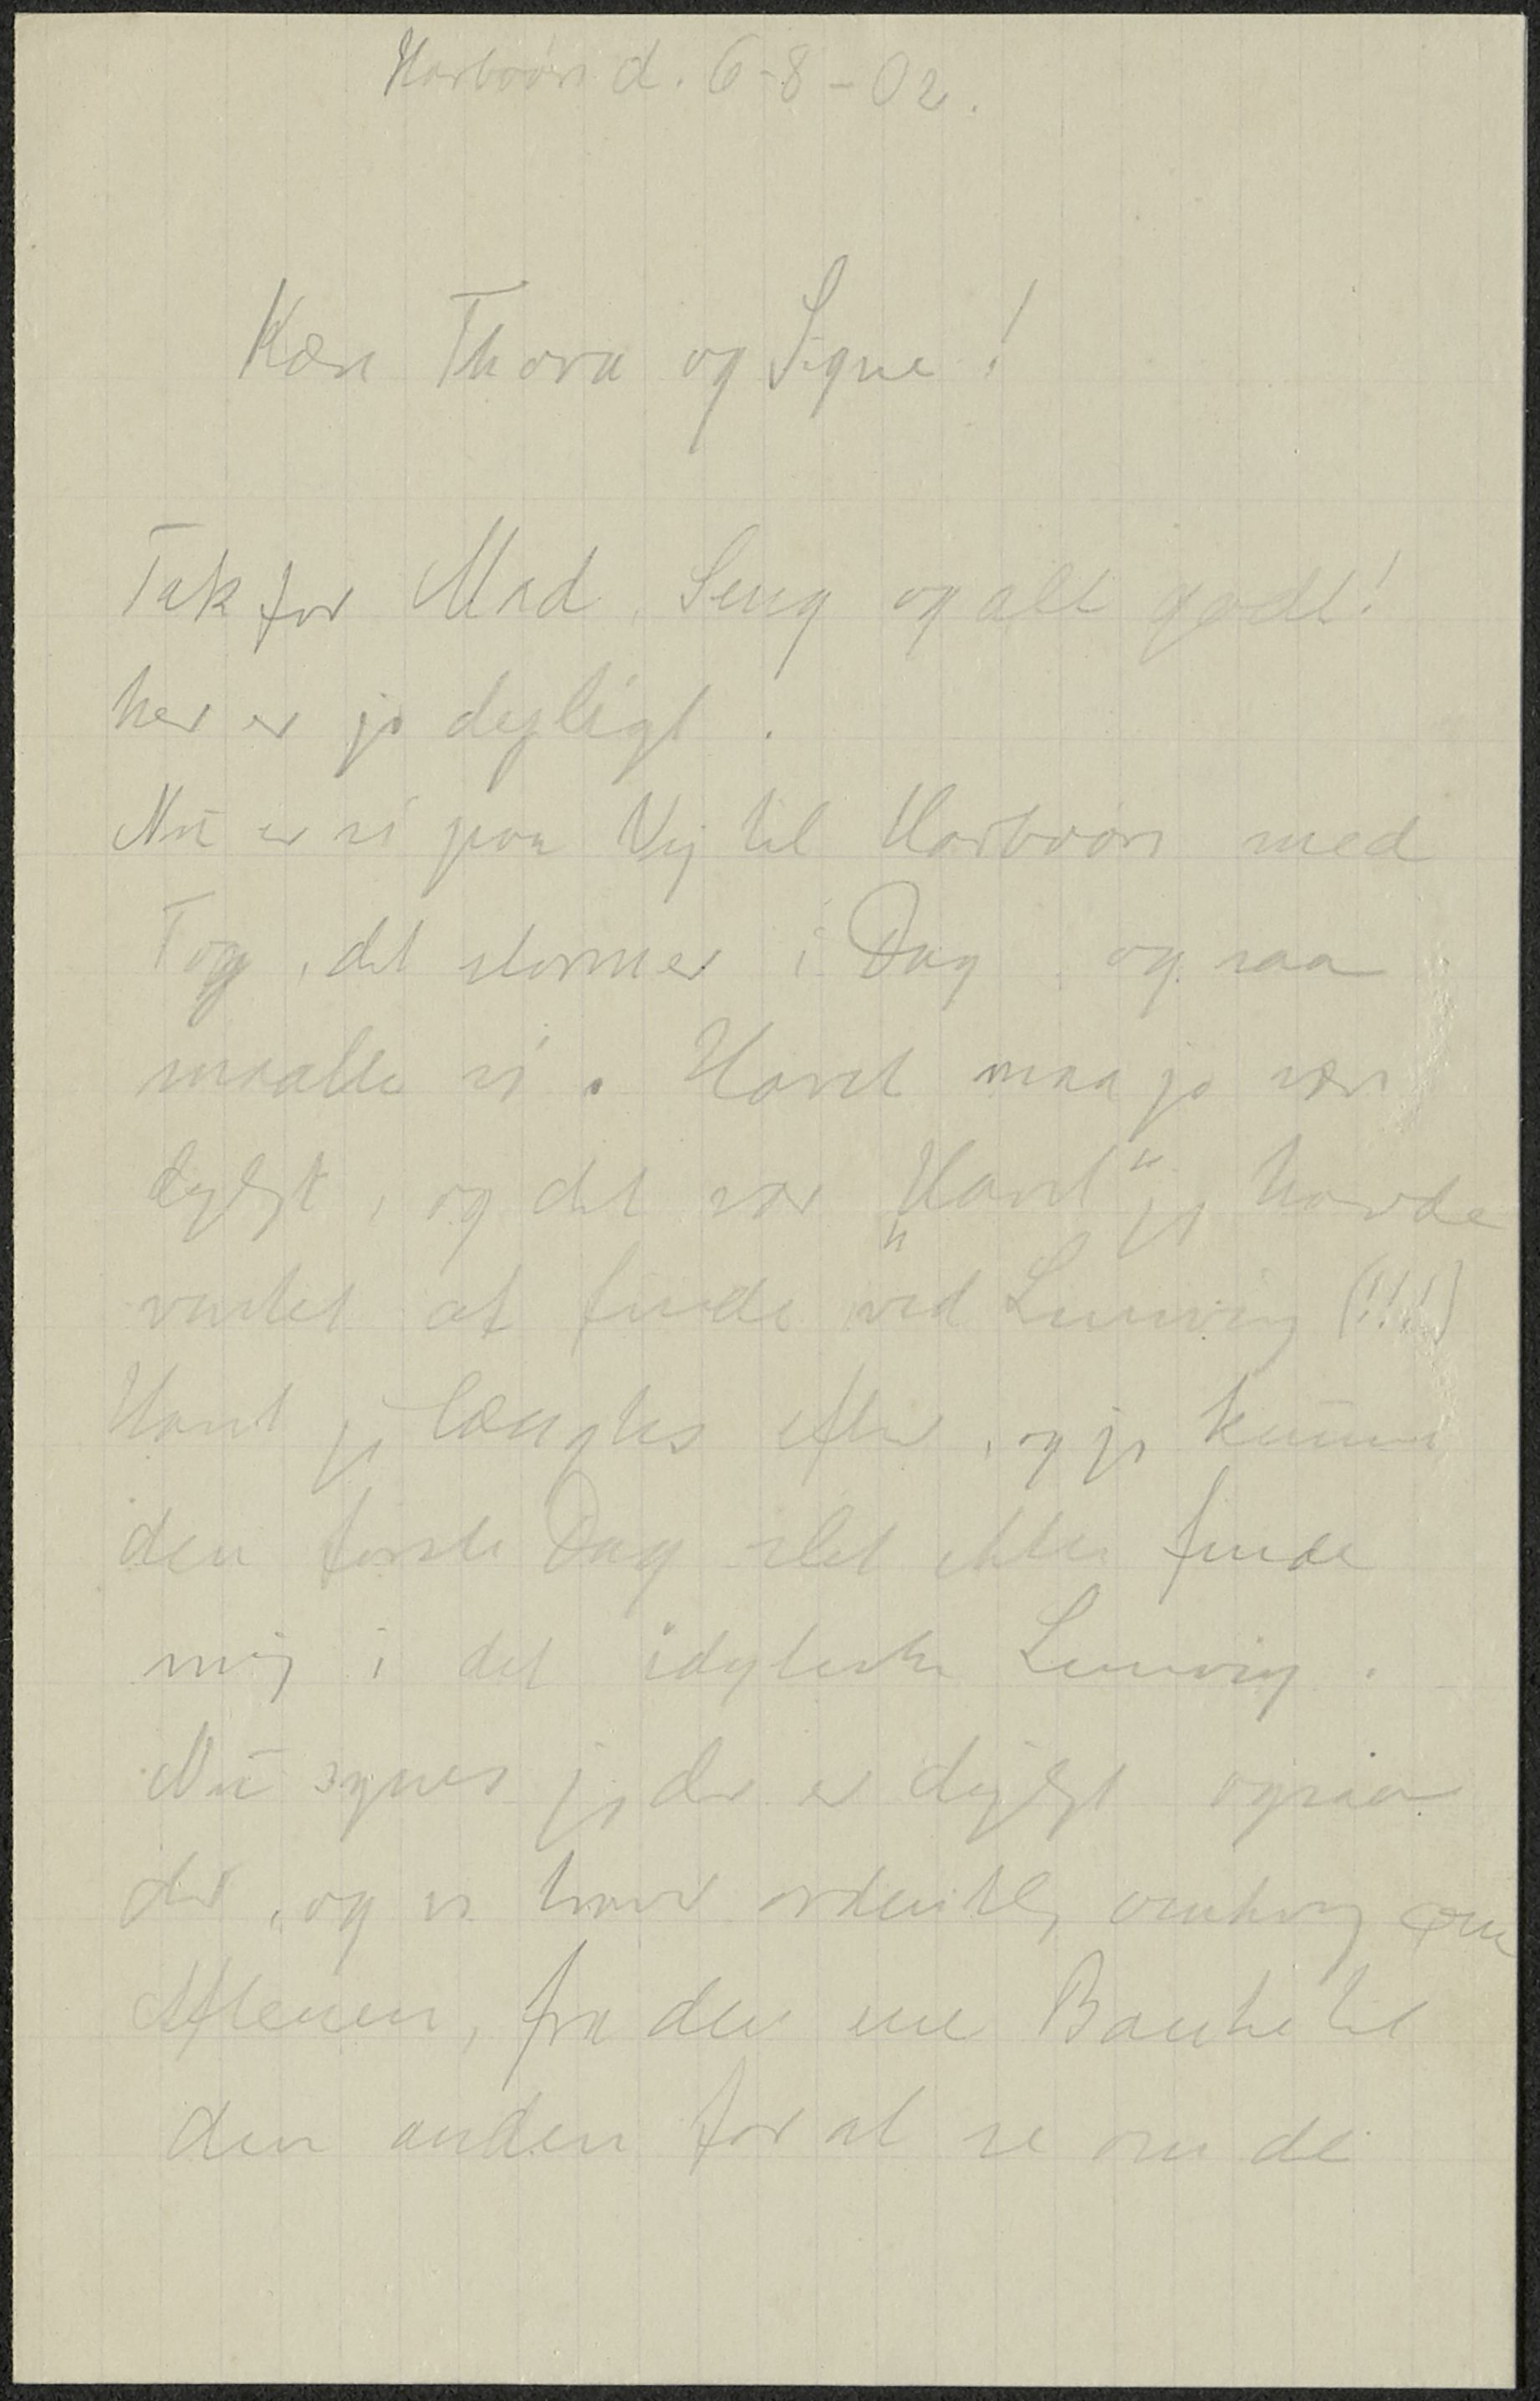 Harboöre d. 6-8-02.
Kære Thora og Signe!
Tak for Mad, Seng og alt godt!
her er jo dejligt.
Nu er vi paa Vej til Harboöre med
Tog, det stormer i Dag og saa
maatte vi. Havet maa jo være
dejligt, og det var „Havet“ jeg havde
ventet at finde ved Lemvig (!!!)
Havet jeg længtes efter, og jeg kunne
den første Dag slet ikke finde
mig i det idyliske Lemvig.
Nu synes jeg der er dejligt ogsaa
der, og vi traver ordentlig omkring om
Aftenen, fra den ene Banke til
den anden for at se om de